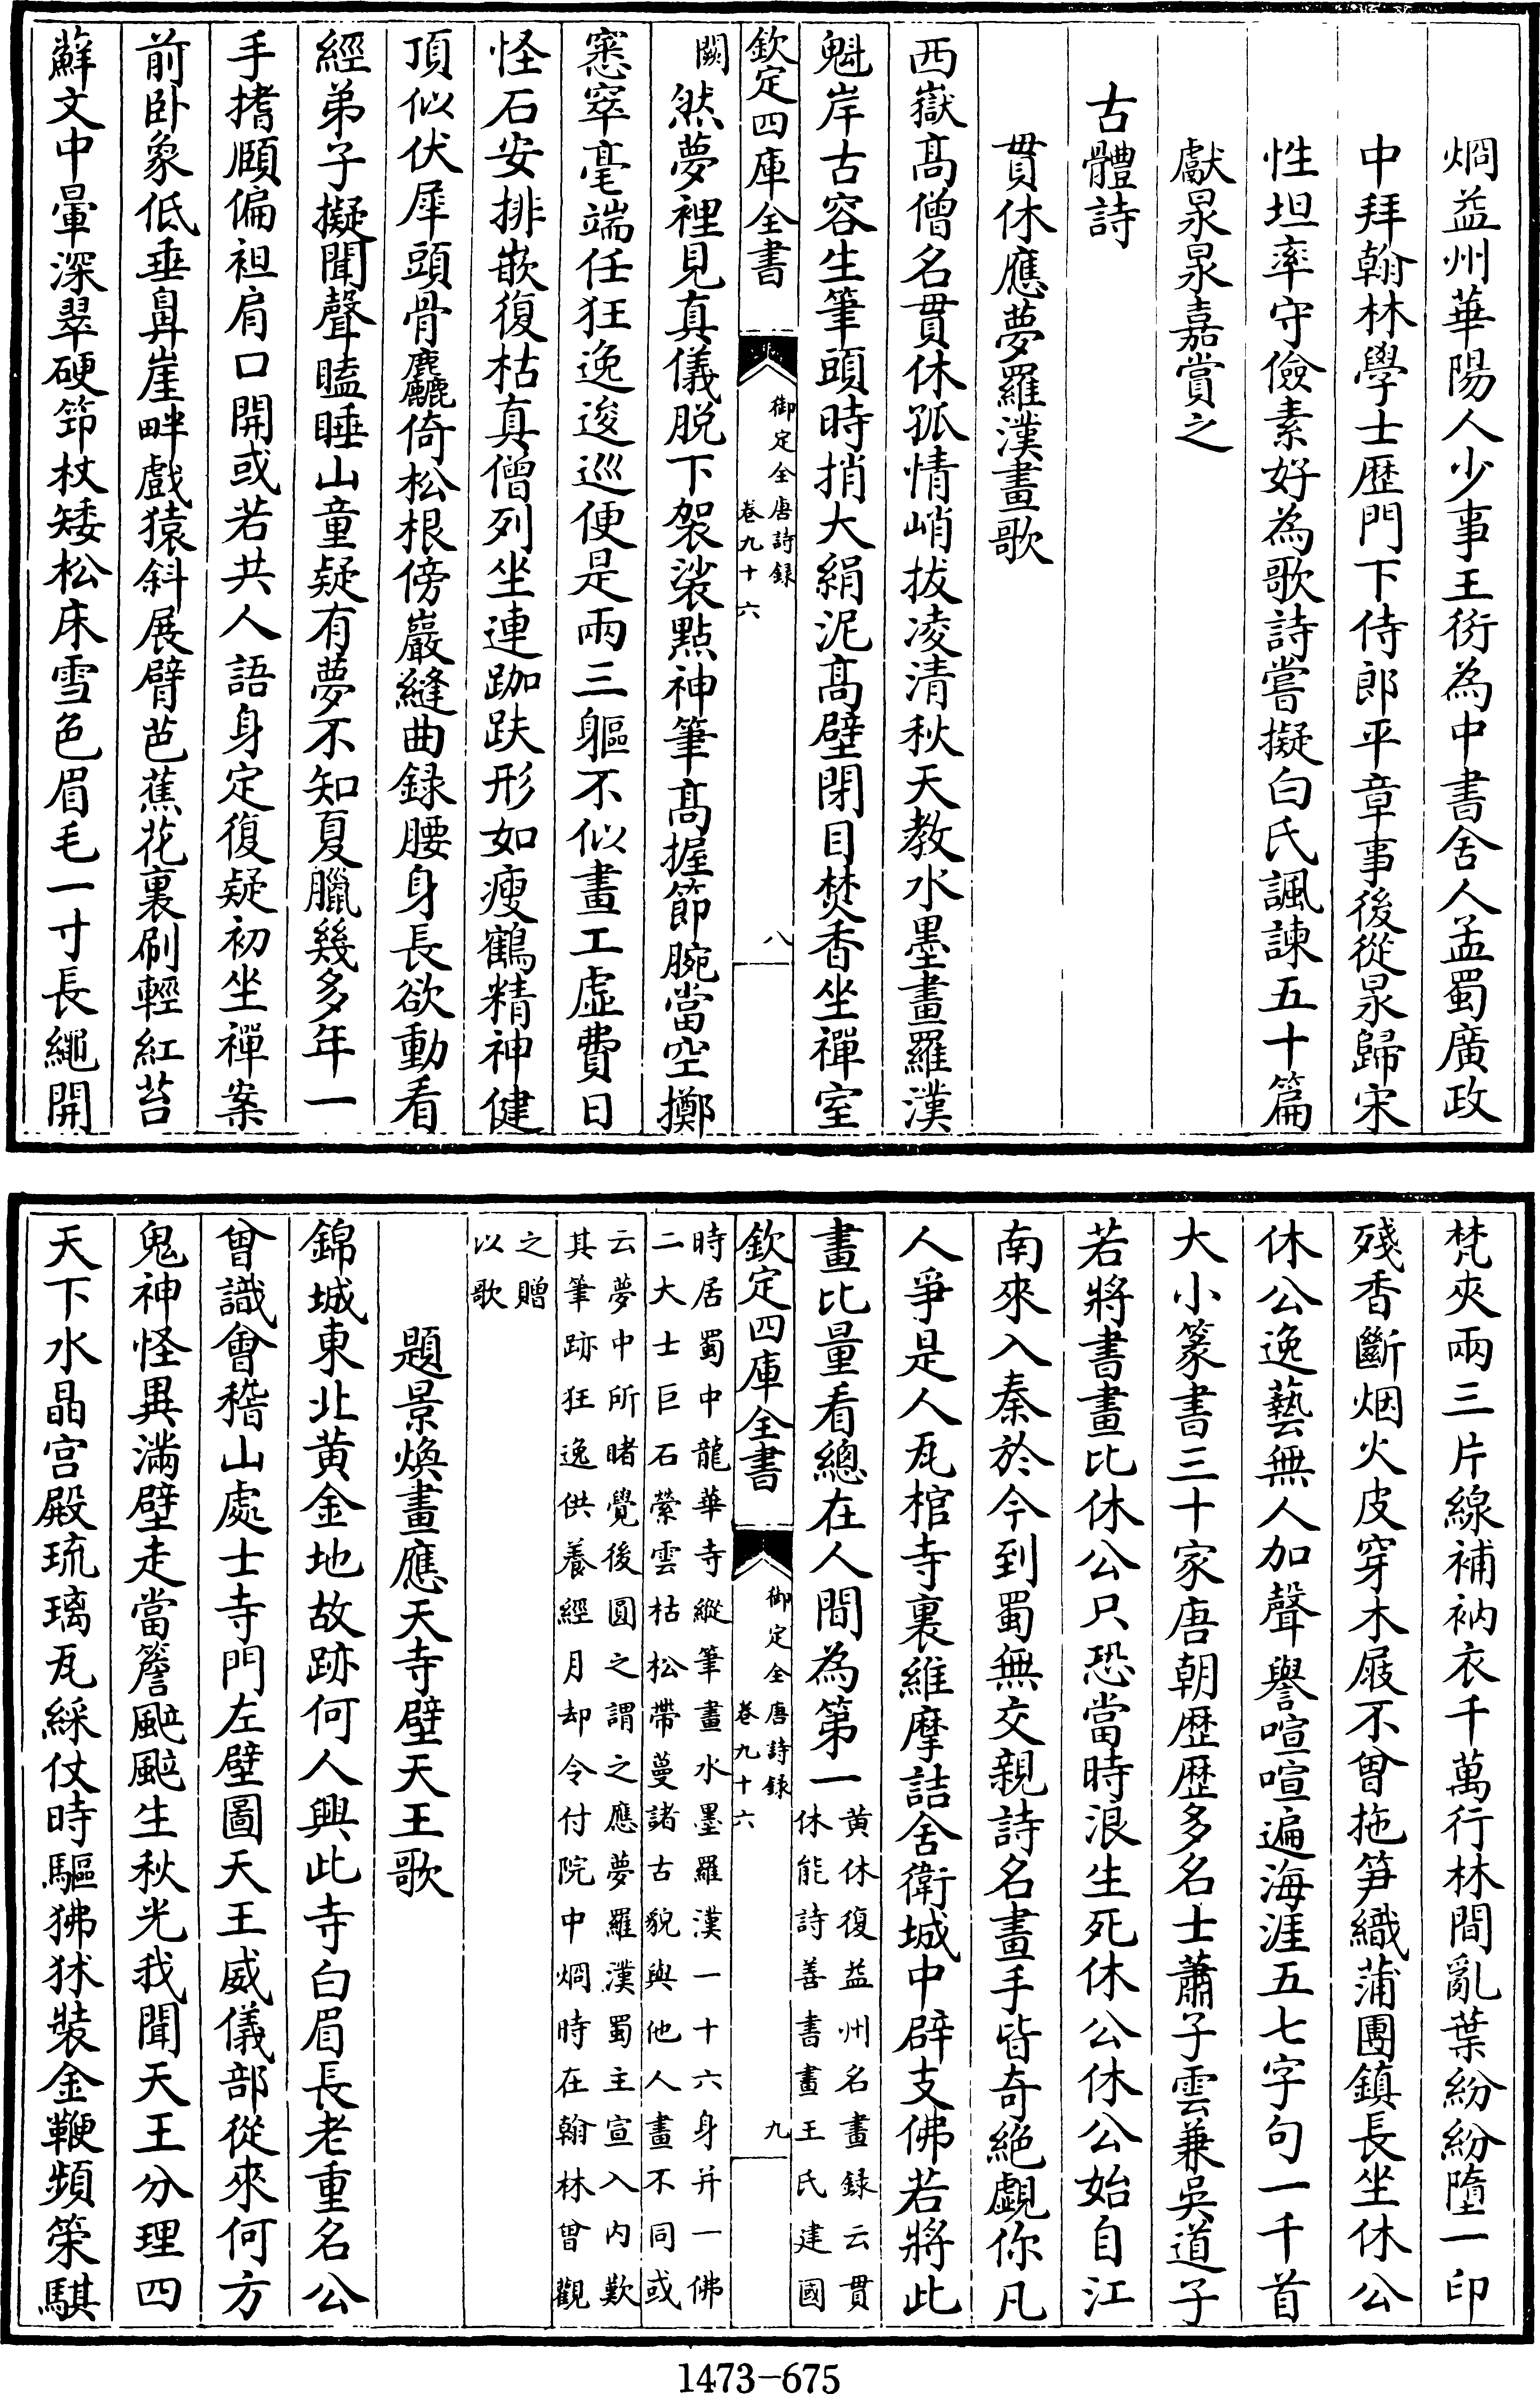 烱益州華陽人少事王衍為中書舍人孟蜀廣政
中拜翰林學士歴門下侍郎平章事後從㫤歸宋
性坦率守儉素好為歌詩嘗擬白氏諷諫五十篇
獻㫤㫤嘉賞之
古體詩
貫休應夢羅漢畫歌
西嶽髙僧名貫休孤情峭拔凌清秋天教水墨畫羅漢
魁岸古容生筆頭時捎大絹泥髙壁閉目焚香坐禪室
欽定四庫全書
御定全唐詩録
卷九十六
八
闕然夢裡見真儀脱下袈裟㸃神筆髙握節腕當空擲
窸窣毫端任狂逸逡巡便是兩三軀不似畫工虚費日
怪石安排嵌復枯真僧列坐連跏趺形如瘦鶴精神健
頂似伏犀頭骨麤倚松根傍巖縫曲録腰身長欲動看
經弟子擬聞聲瞌睡山童疑有夢不知夏臘幾多年一
手搘頤偏袒肩口開或若共人語身定復疑初坐禪案
前卧象低垂鼻崖畔戯猿斜展臂芭蕉花裏刷輕紅苔
蘚文中暈深翠硬笻杖矮松床雪色眉毛一寸長繩開
梵夾兩三片線補衲衣千萬行林間亂葉紛紛墮一印
殘香斷烟火皮穿木屐不曾拖笋織蒲團鎮長坐休公
休公逸藝無人加聲譽喧喧遍海涯五七字句一千首
大小篆書三十家唐朝歴歴多名士蕭子雲兼吳道子
若將書畫比休公只恐當時浪生死休公休公始自江
南來入秦於今到蜀無交親詩名畫手皆奇絶覷你凡
人爭是人瓦棺寺裏維摩詰舍衛城中辟支佛若將此
畫比量看總在人間為第一黄休復益州名畫録云貫
休能詩善書畫王氏建國
欽定四庫全書
御定全唐詩録
卷九十六
九
時居蜀中龍華寺縱筆畫水墨羅漢一十六身并一佛
二大士巨石縈雲枯松帶蔓諸古貌與他人畫不同或
云夢中所睹覺後圓之謂之應夢羅漢蜀主宣入内歎
其筆跡狂逸供養經月却令付院中烱時在翰林曾觀
之贈
以歌
題景煥畫應天寺壁天王歌
錦城東北黄金地故跡何人興此寺白眉長老重名公
曾識㑹稽山處士寺門左壁圖天王威儀部從來何方
鬼神怪異滿壁走當簷颭颭生秋光我聞天王分理四
天下水晶宫殿琉璃瓦綵仗時驅狒𤝻裝金鞭頻策騏
1473-675